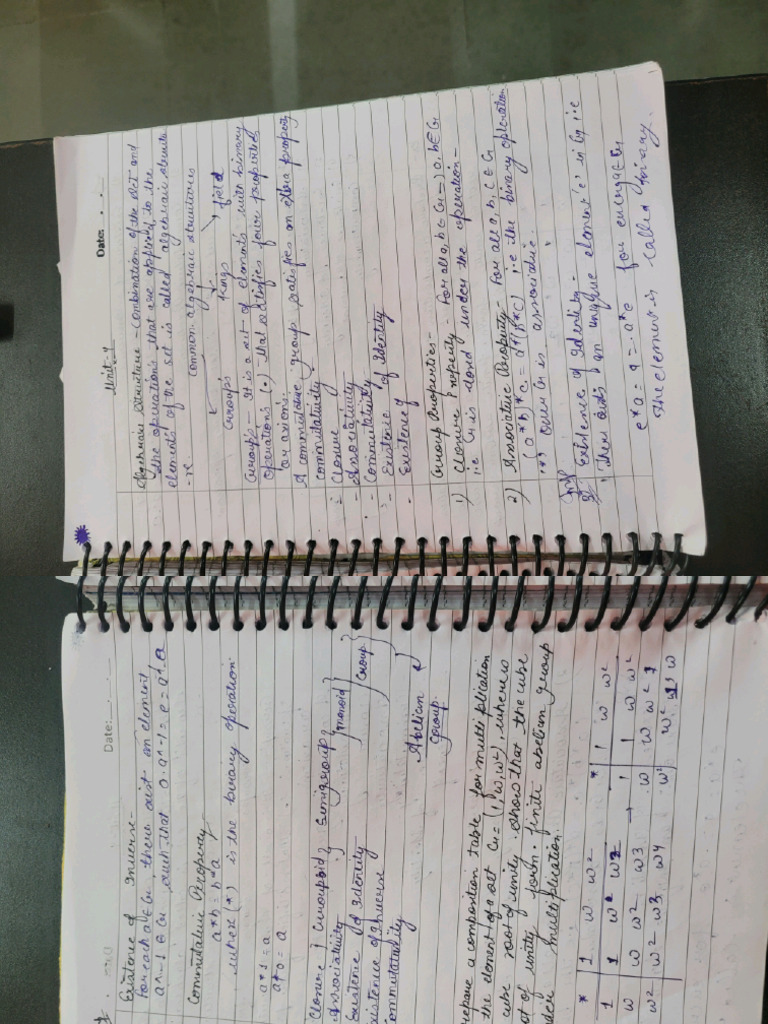 Date:
Unit-1
Algebraic Structure - Combination of the set and
the operations that are applied to the
elements of the set is called algebraic structu
-re
common algebraic structures
Groups rings field
Groups - It is a set of elements with binary
operations (•) that satisfies four properties
(or axioms.
A commutative group satisfies an extra property
commutativity
- Closure
- Associativity
- Commutativity
- Existence of Identity
- Existence of
Group Properties -
1) Closure Property - For all a, b ∈ G → a, b ∈ G
i.e G is closed under the operation -
2) Associative Property - For all a, b, c ∈ G
(a*b)*c = a*(b*c) i.e the binary operation
'*' over G is associative.
Imp
3) Existence of Identity -
There exists an unique element 'e' in G i.e
e*a = a = a*e for every a ∈ G
the element is called
Date:
Existence of Inverse -
For each a ∈ G there exist an element
a^-1 ∈ G such that a.a^-1 = e = a^-1.a
Commutative Property
a*b = b*a
where (*) is the binary operation.
a*1 = a
a+0 = a
Closure } Groupoid } Semigroup
Associativity
Existence of Identity } monoid
Existence of Inverse } Group
Commutativity
Abelian
Group.
prepare a composition table for multiplication
the element of a set G = (1, w, w²), where w
cube root of unity. show that the cube
ot of unity form finite abelian group
nder multiplication.
* | 1 w w² * | 1 w w²
1 | 1 w w² → 1 | 1 w w²
w | w w² w3 w | w w² 1
w² | w² w3 w4 w² | w² 1 w